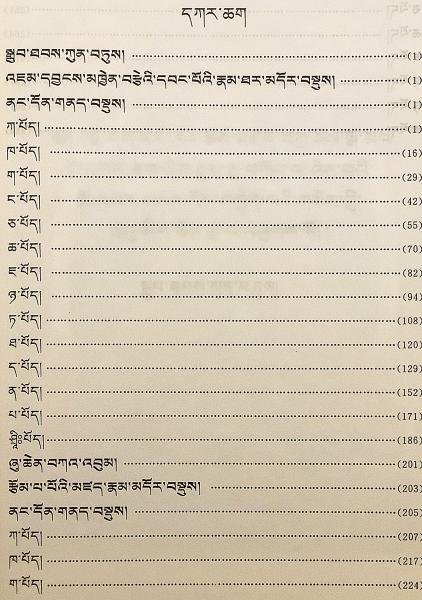 དཀར་ཆག
སྒྲུབ་ཐབས་ཀུན་བཏུས། (1)
འཇམ་དབྱངས་མཁྱེན་བརྩེའི་དབང་པོའི་རྣམ་ཐར་མདོར་བསྡུས། (1)
ནང་དོན་གནད་བསྡུས། (1)
ཀ་པོད། (1)
ཁ་པོད། (16)
ག་པོད། (29)
ང་པོད། (42)
ཅ་པོད། (55)
ཆ་པོད། (70)
ཇ་པོད། (82)
ཉ་པོད། (94)
ཏ་པོད། (108)
ཐ་པོད། (120)
ད་པོད། (129)
ན་པོད། (152)
པ་པོད། (171)
པོད། (186)
ཞུ་ཆེན་བཀའ་འབུམ། (201)
རྩོམ་པ་པོའི་མཛད་རྣམ་མདོར་བསྡུས། (203)
ནང་དོན་གནད་བསྡུས། (205)
ཀ་པོད། (207)
ཁ་པོད། (217)
ག་པོད། (224)